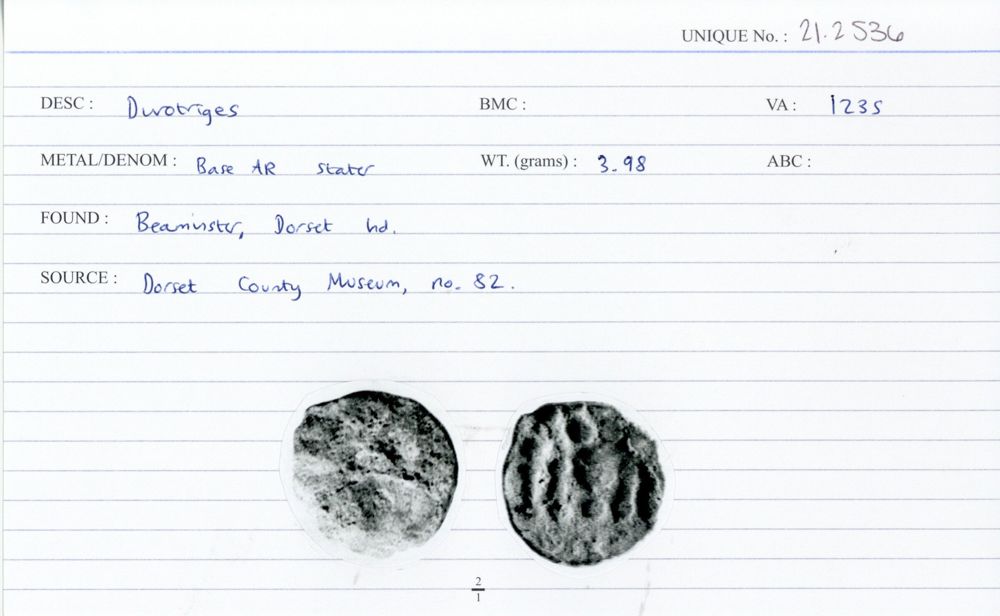 UNIQUE No. : 21.2536
DESC : Durotriges BMC : VA : 1235
METAL/DENOM : Base AR Stater WT. (grams) : 3.98 ABC :
FOUND : Beaminster, Dorset hd.
SOURCE : Dorset County Museum, no. 82.
2
1